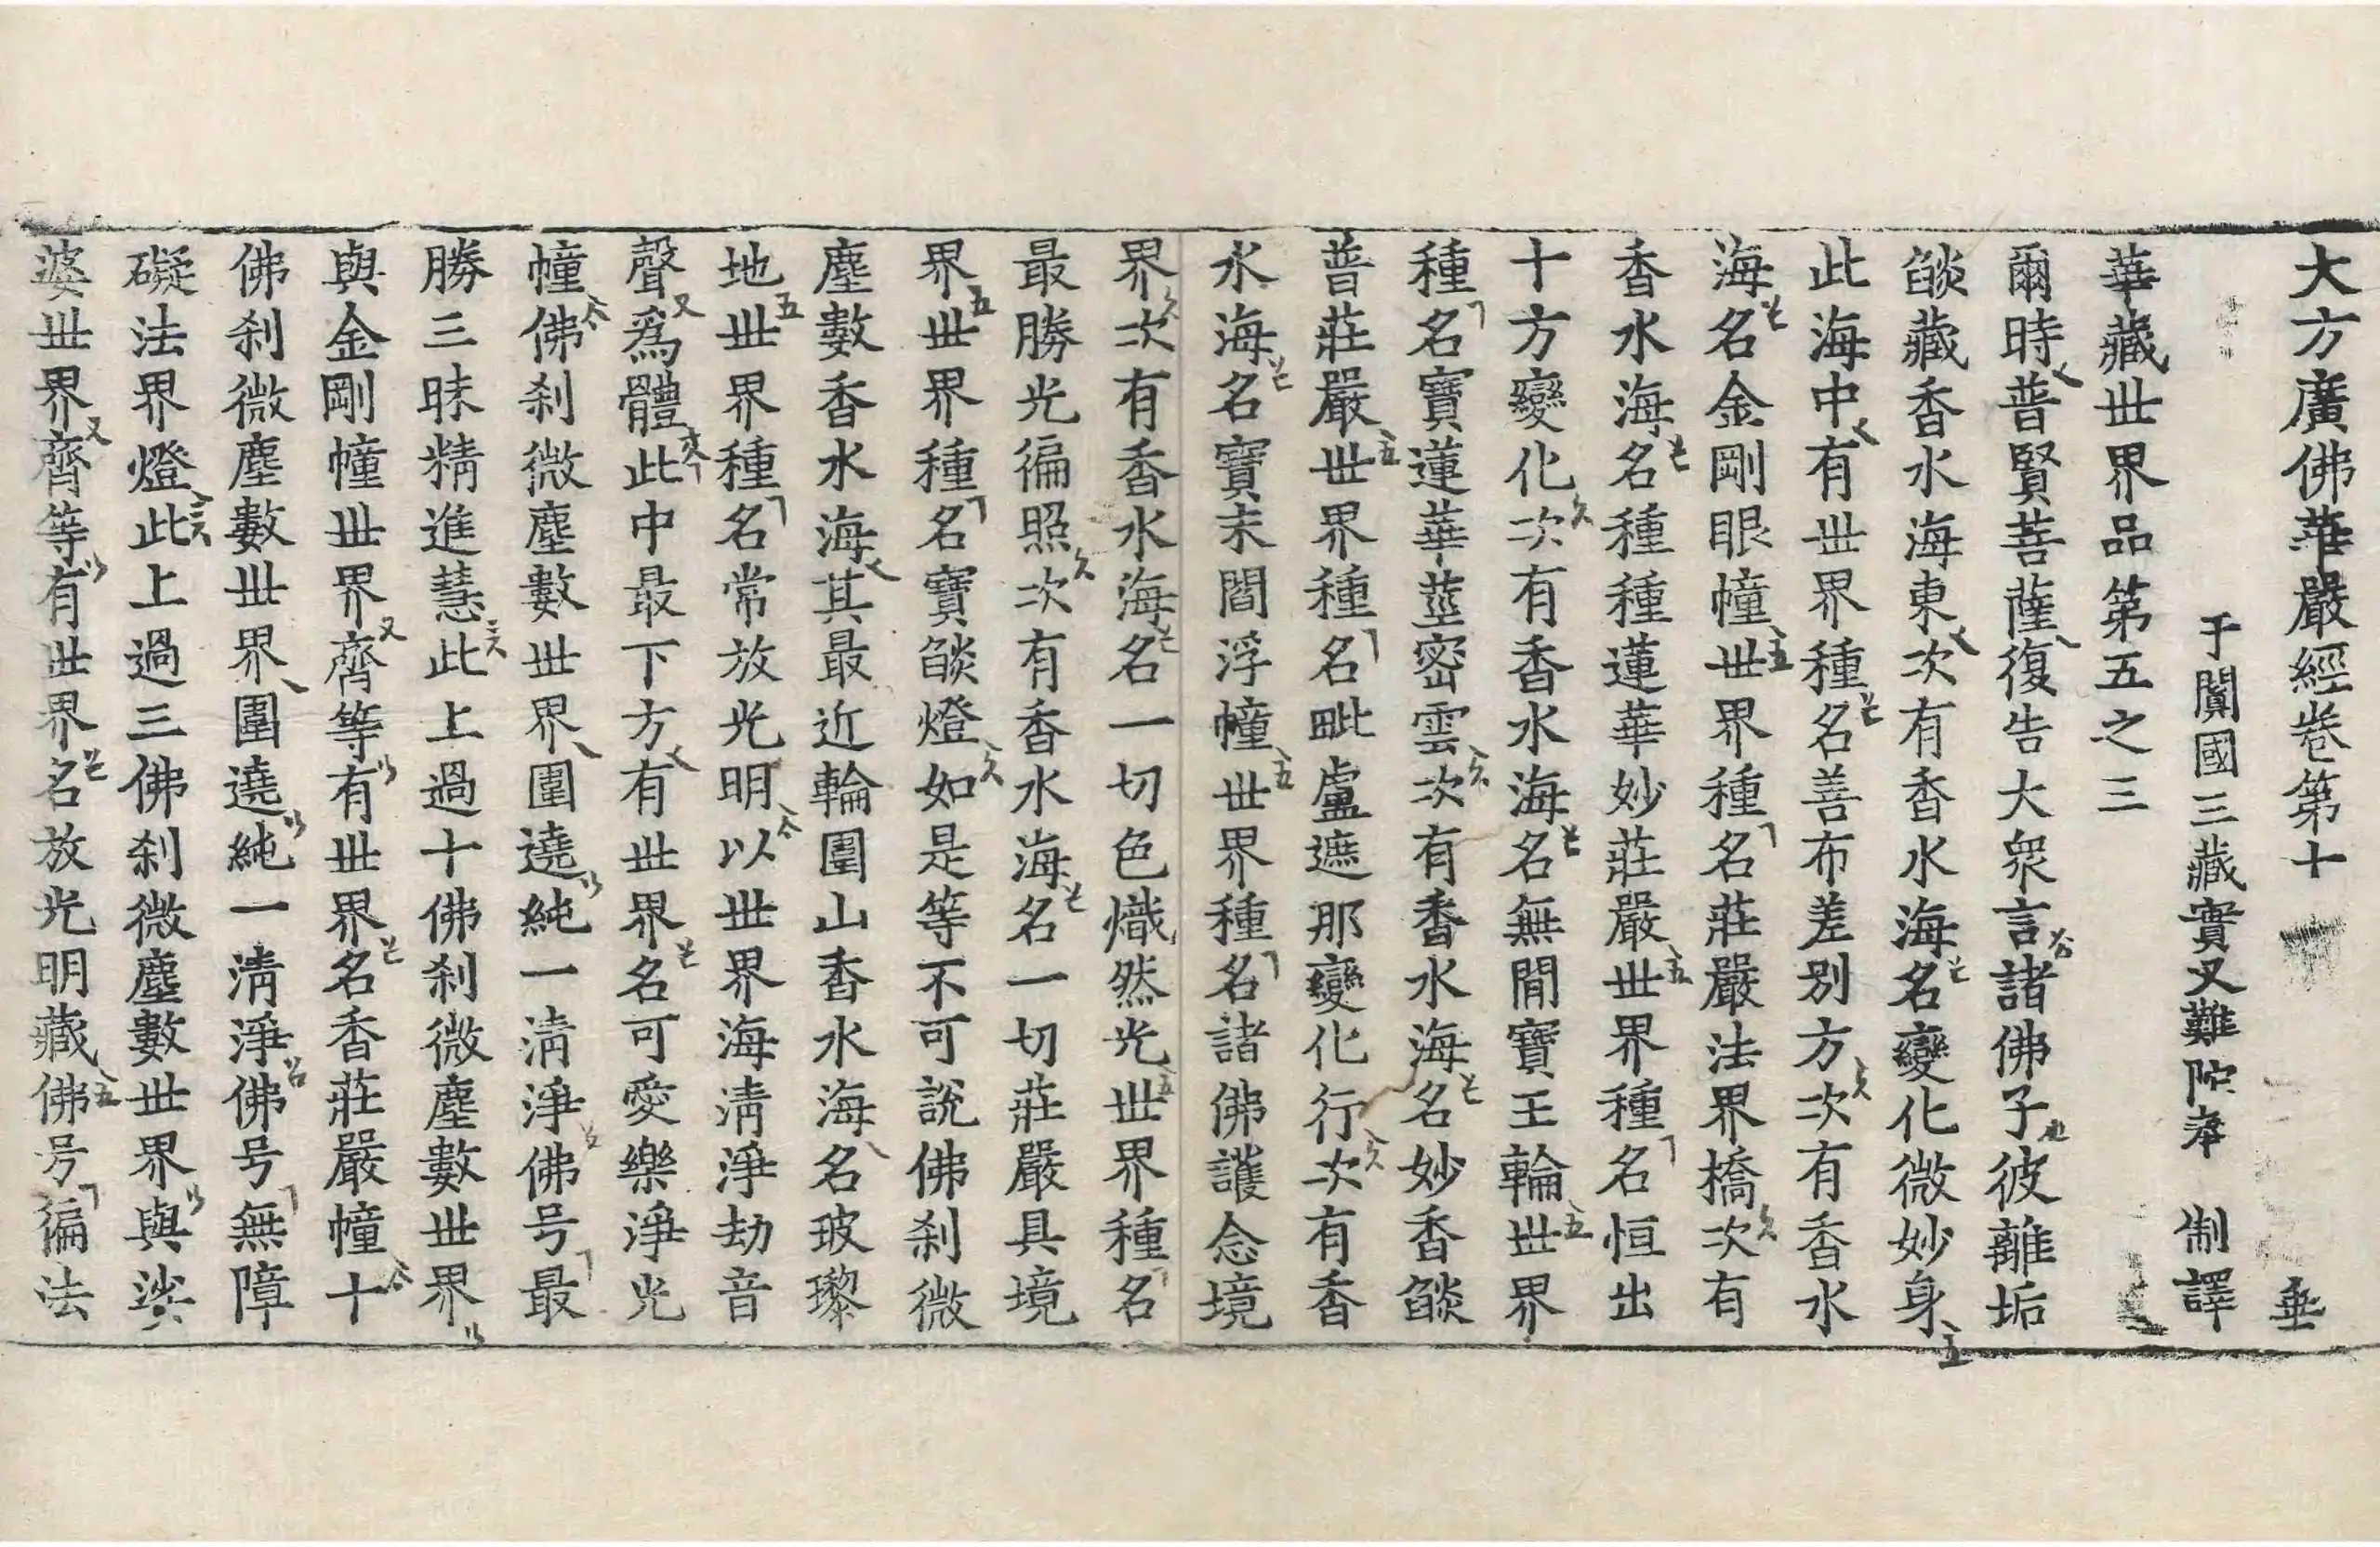 大方廣佛華嚴經卷第十　垂
于闐國三藏實叉難陁奉　制譯
華藏世界品第五之三
爾時普賢菩薩復告大衆言諸佛子彼離垢
燄藏香水海東次有香水海名變化微妙身
此海中有世界種名善布差別方次有香水
海名金剛眼幢世界種名莊嚴法界橋次有
香水海名種種蓮華妙莊嚴世界種名恒出
十方變化次有香水海名無閒寶王輪世界
種名寶蓮華莖密雲次有香水海名妙香燄
普莊嚴世界種名毗盧遮那變化行次有香
水海名寶末閻浮幢世界種名諸佛護念境
界次有香水海名一切色熾然光世界種名
最勝光徧照次有香水海名一切莊嚴具境
界世界種名寶燄燈如是等不可說佛刹微
塵數香水海其最近輪圍山香水海名玻瓈
地世界種名常放光明以世界海清淨劫音
聲爲體此中最下方有世界名可愛樂淨光
幢佛刹微塵數世界圍遶純一清淨佛号最
勝三昧精進慧此上過十佛刹微塵數世界
與金剛幢世界齊等有世界名香莊嚴幢十
佛刹微塵數世界圍遶純一清淨佛号無障
礙法界燈此上過三佛刹微塵數世界與娑
婆世界齊等有世界名放光明藏佛号徧法